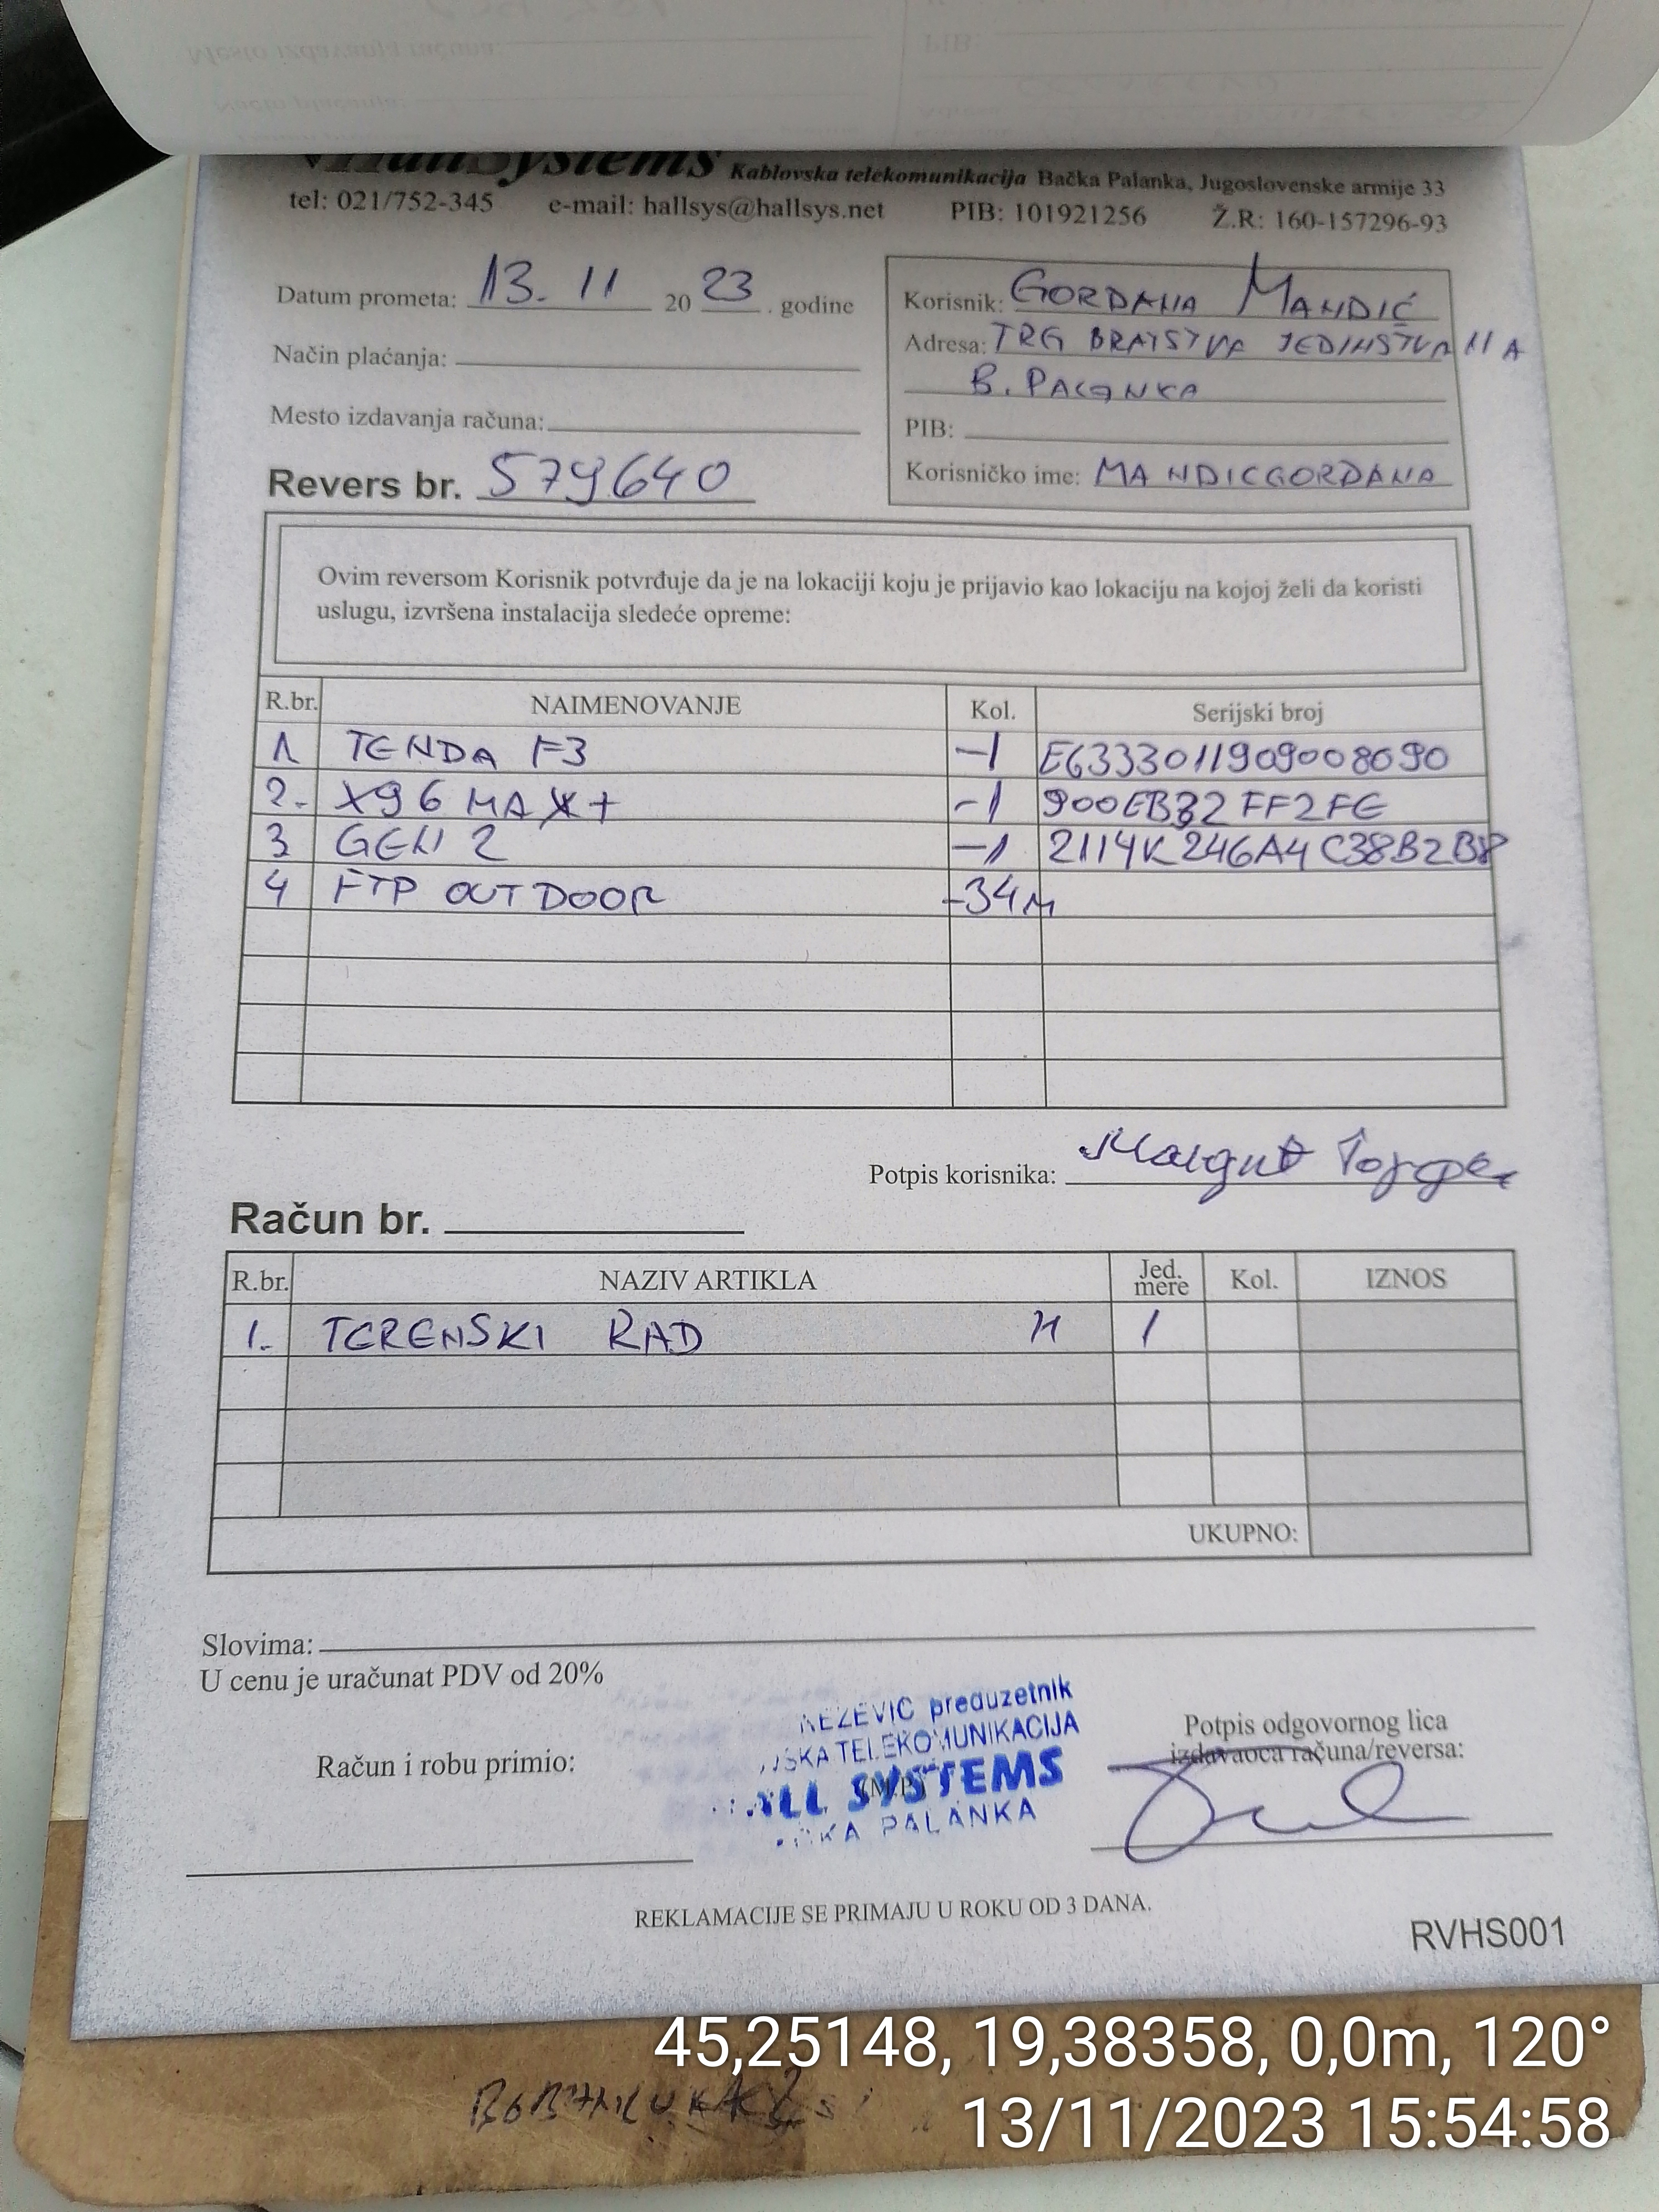 HallSystems Kablovska telekomunikacija Bačka Palanka, Jugoslovenske armije 33
tel: 021/752-345 e-mail: hallsys@hallsys.net PIB: 101921256 Ž.R: 160-157296-93
Datum prometa: 13. 11 2023. godine
Način plaćanja:
Mesto izdavanja računa:
Revers br. 579640
Korisnik: GORDANA MANDIĆ
Adresa: TRG BRATSTVA JEDINSTVA 11 A
B. PALANKA
PIB:
Korisničko ime: MANDICGORDANA
Ovim reversom Korisnik potvrđuje da je na lokaciji koju je prijavio kao lokaciju na kojoj želi da koristi
uslugu, izvršena instalacija sledeće opreme:
R.br. NAIMENOVANJE Kol. Serijski broj
1. TENDA F3 -1 E6333011909008090
2. X96 MAX+ -1 900EB332FF2FE
3 GEN 2 -1 2114K246A4C38B2B8
4 FTP OUTDOOR -34M
Potpis korisnika:
Račun br.
R.br. NAZIV ARTIKLA Jed. mere Kol. IZNOS
1. TERENSKI RAD H 1
UKUPNO:
Slovima:
U cenu je uračunat PDV od 20%
Račun i robu primio:
NEZEVIC preduzetnik
SKA TELEKOMUNIKACIJA
(M.P.)
ALL SYSTEMS
KA PALANKA
Potpis odgovornog lica
izdavaoca računa/reversa:
REKLAMACIJE SE PRIMAJU U ROKU OD 3 DANA.
RVHS001
45,25148, 19,38358, 0,0m, 120°
13/11/2023 15:54:58